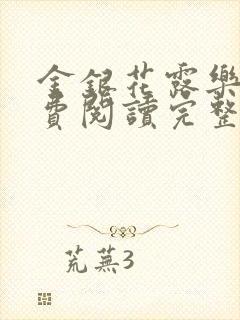 金銀花露樂
費閱讀完整
荒蕪3